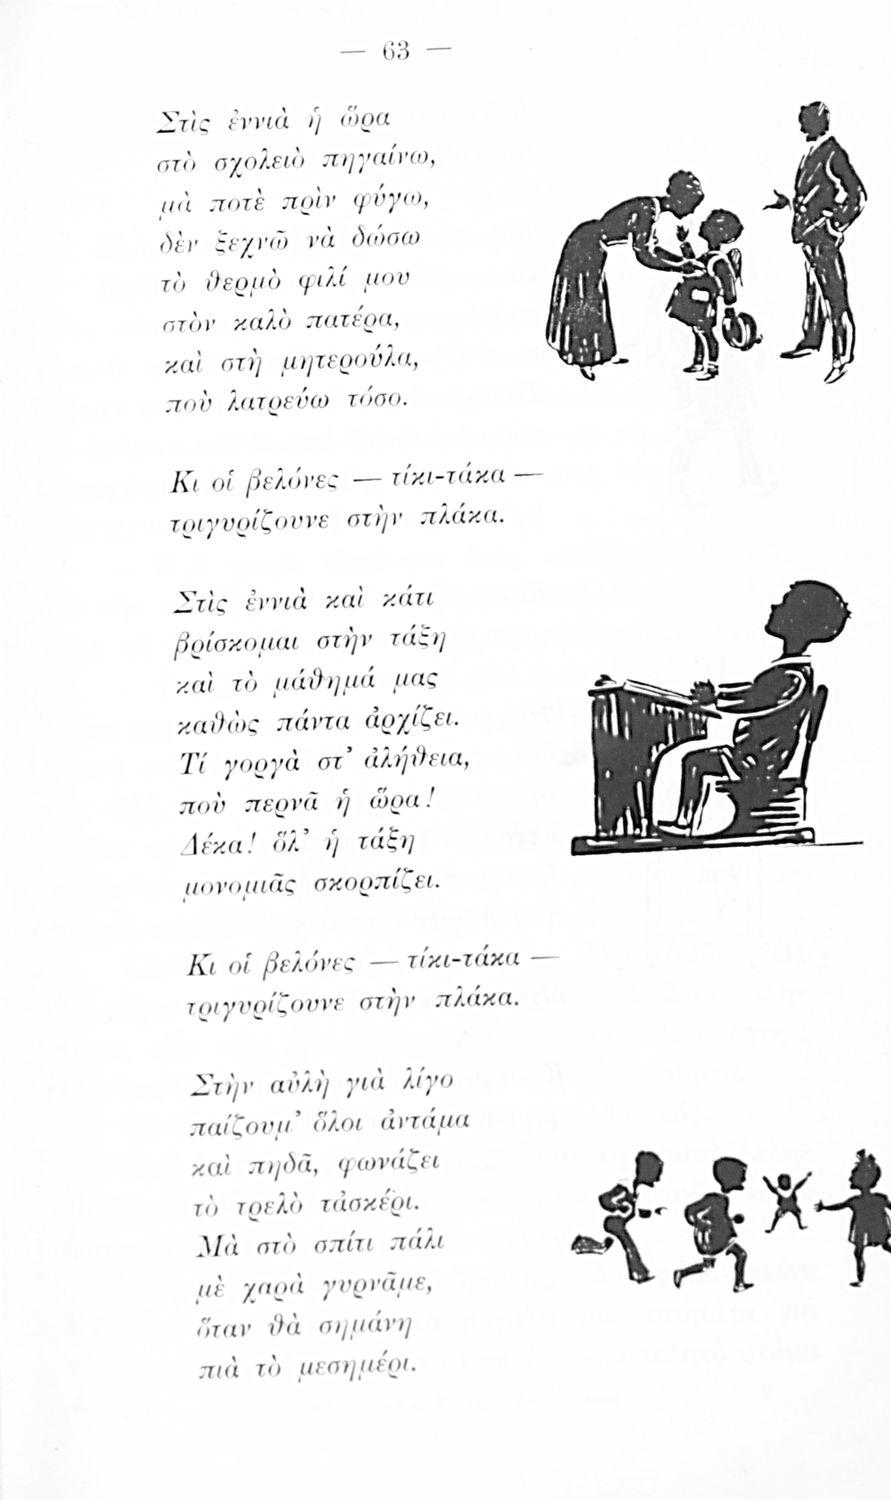 — 63 —
Στὶς ἐννιὰ ἡ ὥρα
στὸ σχολειὸ πηγαίνω,
μὰ ποτὲ πρὶν φύγω,
δὲν ξεχνῶ νὰ δώσω
τὸ θερμὸ φιλί μου
στὸν καλὸ πατέρα,
καὶ στὴ μητερούλα,
ποὺ λατρεύω τόσο.
Κι οἱ βελόνες — τίκι-τάκα —
τριγυρίζουνε στὴν πλάκα.
Στὶς ἐννιὰ καὶ κάτι
βρίσκομαι στὴν τάξη
καὶ τὸ μάθημά μας
καθὼς πάντα ἀρχίζει.
Τί γοργὰ στ' ἀλήθεια,
ποὺ περνᾶ ἡ ὥρα!
Δέκα! ὅλ' ἡ τάξη
μονομιᾶς σκορπίζει.
Κι οἱ βελόνες — τίκι-τάκα —
τριγυρίζουνε στὴν πλάκα.
Στὴν αὐλὴ γιὰ λίγο
παίζουμ' ὅλοι ἀντάμα
καὶ πηδᾶ, φωνάζει
τὸ τρελὸ τἀσκέρι.
Μὰ στὸ σπίτι πάλι
μὲ χαρὰ γυρνᾶμε,
ὅταν θὰ σημάνη
πιὰ τὸ μεσημέρι.